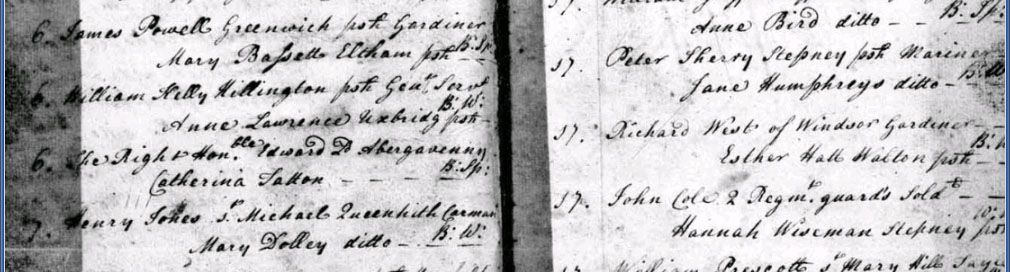 6. James Powell Greenwich psh Gardiner
Mary Bassett Eltham psh B: Sp:
6. William Kelly Hillington psh Gent. Servt
Anne Lawrence Uxbridg psh B: W:
6. The Right Honble Edward Ld Abergavenny
Catherina Tatton B: Sp:
7. Henry Jones St Michael Queenhith Carman
Mary Dolley ditto B: W:
17.
Anne Bird ditto B: Sp:
17. Peter Sherry Stepney psh Mariner
Jane Humphreys ditto B: W
17. Richard West of Windsor Gardiner
Esther Hall Walton psh B: W
17. John Cole 2 Regmt guards Soldr
Hannah Wiseman Stepney psh
17. William Prescott St Mary Hill